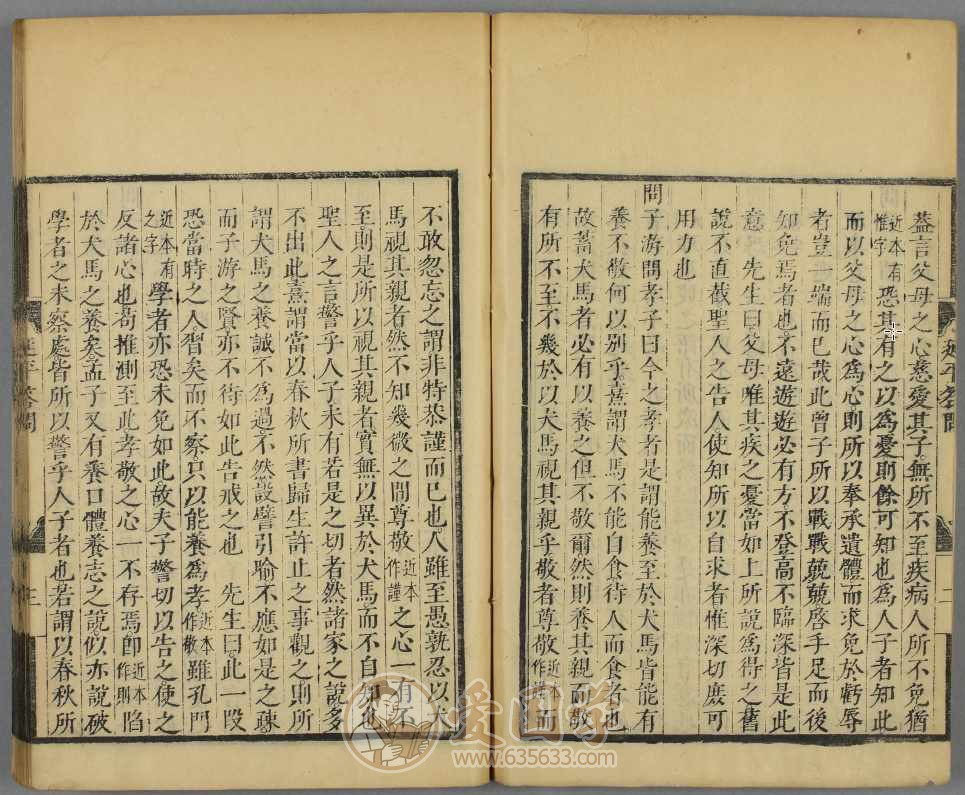 蓋言父母之心慈愛其子無所不至疾病人所不免猶
近本有惟字恐其有之以為憂則餘可知也為人子者知此
而以父母之心為心則所以奉承遺體而求免於虧辱
者豈一端而已哉此曾子所以戰戰兢兢啓手足而後
知免焉者也不遠遊遊必有方不登高不臨深皆是此
意 先生曰父母唯其疾之憂當如上所說為得之舊
說不直截聖人之告人使知所以自求者惟深切庶可
用力也
問子游問孝子曰今之孝者是謂能養至於犬馬皆能有
養不敬何以別乎熹謂犬馬不能自食待人而食者也
故蓄犬馬者必有以養之但不敬爾然則養其親而敬
有所不至不幾於以犬馬視其親乎敬者尊敬近本作諸而
不敢忽忘之謂非特恭謹而已也人雖至愚孰忍以犬
馬視其親者然不知幾微之間尊敬近本作謹之心一有不
至則是所以視其親者實無以異於犬馬而不自知也
聖人之言警乎人子未有若是之切者然諸家之說多
不出此熹謂當以春秋所書歸生許止之事觀之則所
謂犬馬之養誠不為過不然設譬引喻不應如是之疎
而子游之賢亦不待如此告戒之也 先生曰此一段
恐當時之人習矣而不察只以能養為孝近本作敬雖孔門
近本有之字學者亦恐未免如此故夫子警切以告之使之
反諸心也苟推測至此孝敬之心一不存焉卽近本作則陷
於犬馬之養矣孟子又有養口體養志之說似亦說破
學者之未察處皆所以警乎人子者也若謂以春秋所
延平答問
二
延平答問
三
愛國學
www.635633.com